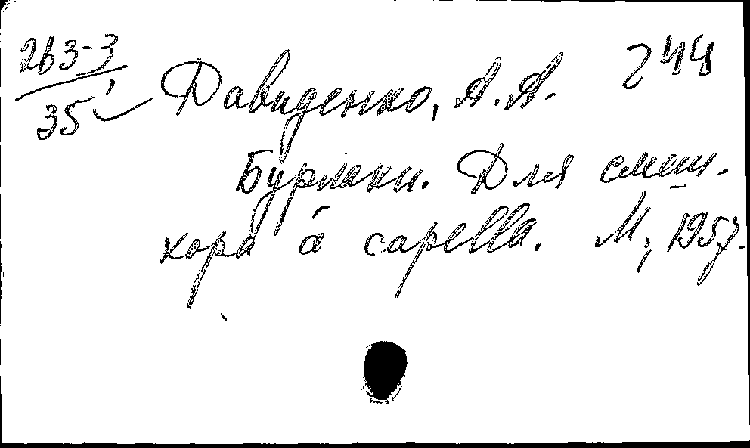 263-3
35
244
Давиденко, А. А.
Бурлаки. Для смеш.
хора á capella. М., 1957.